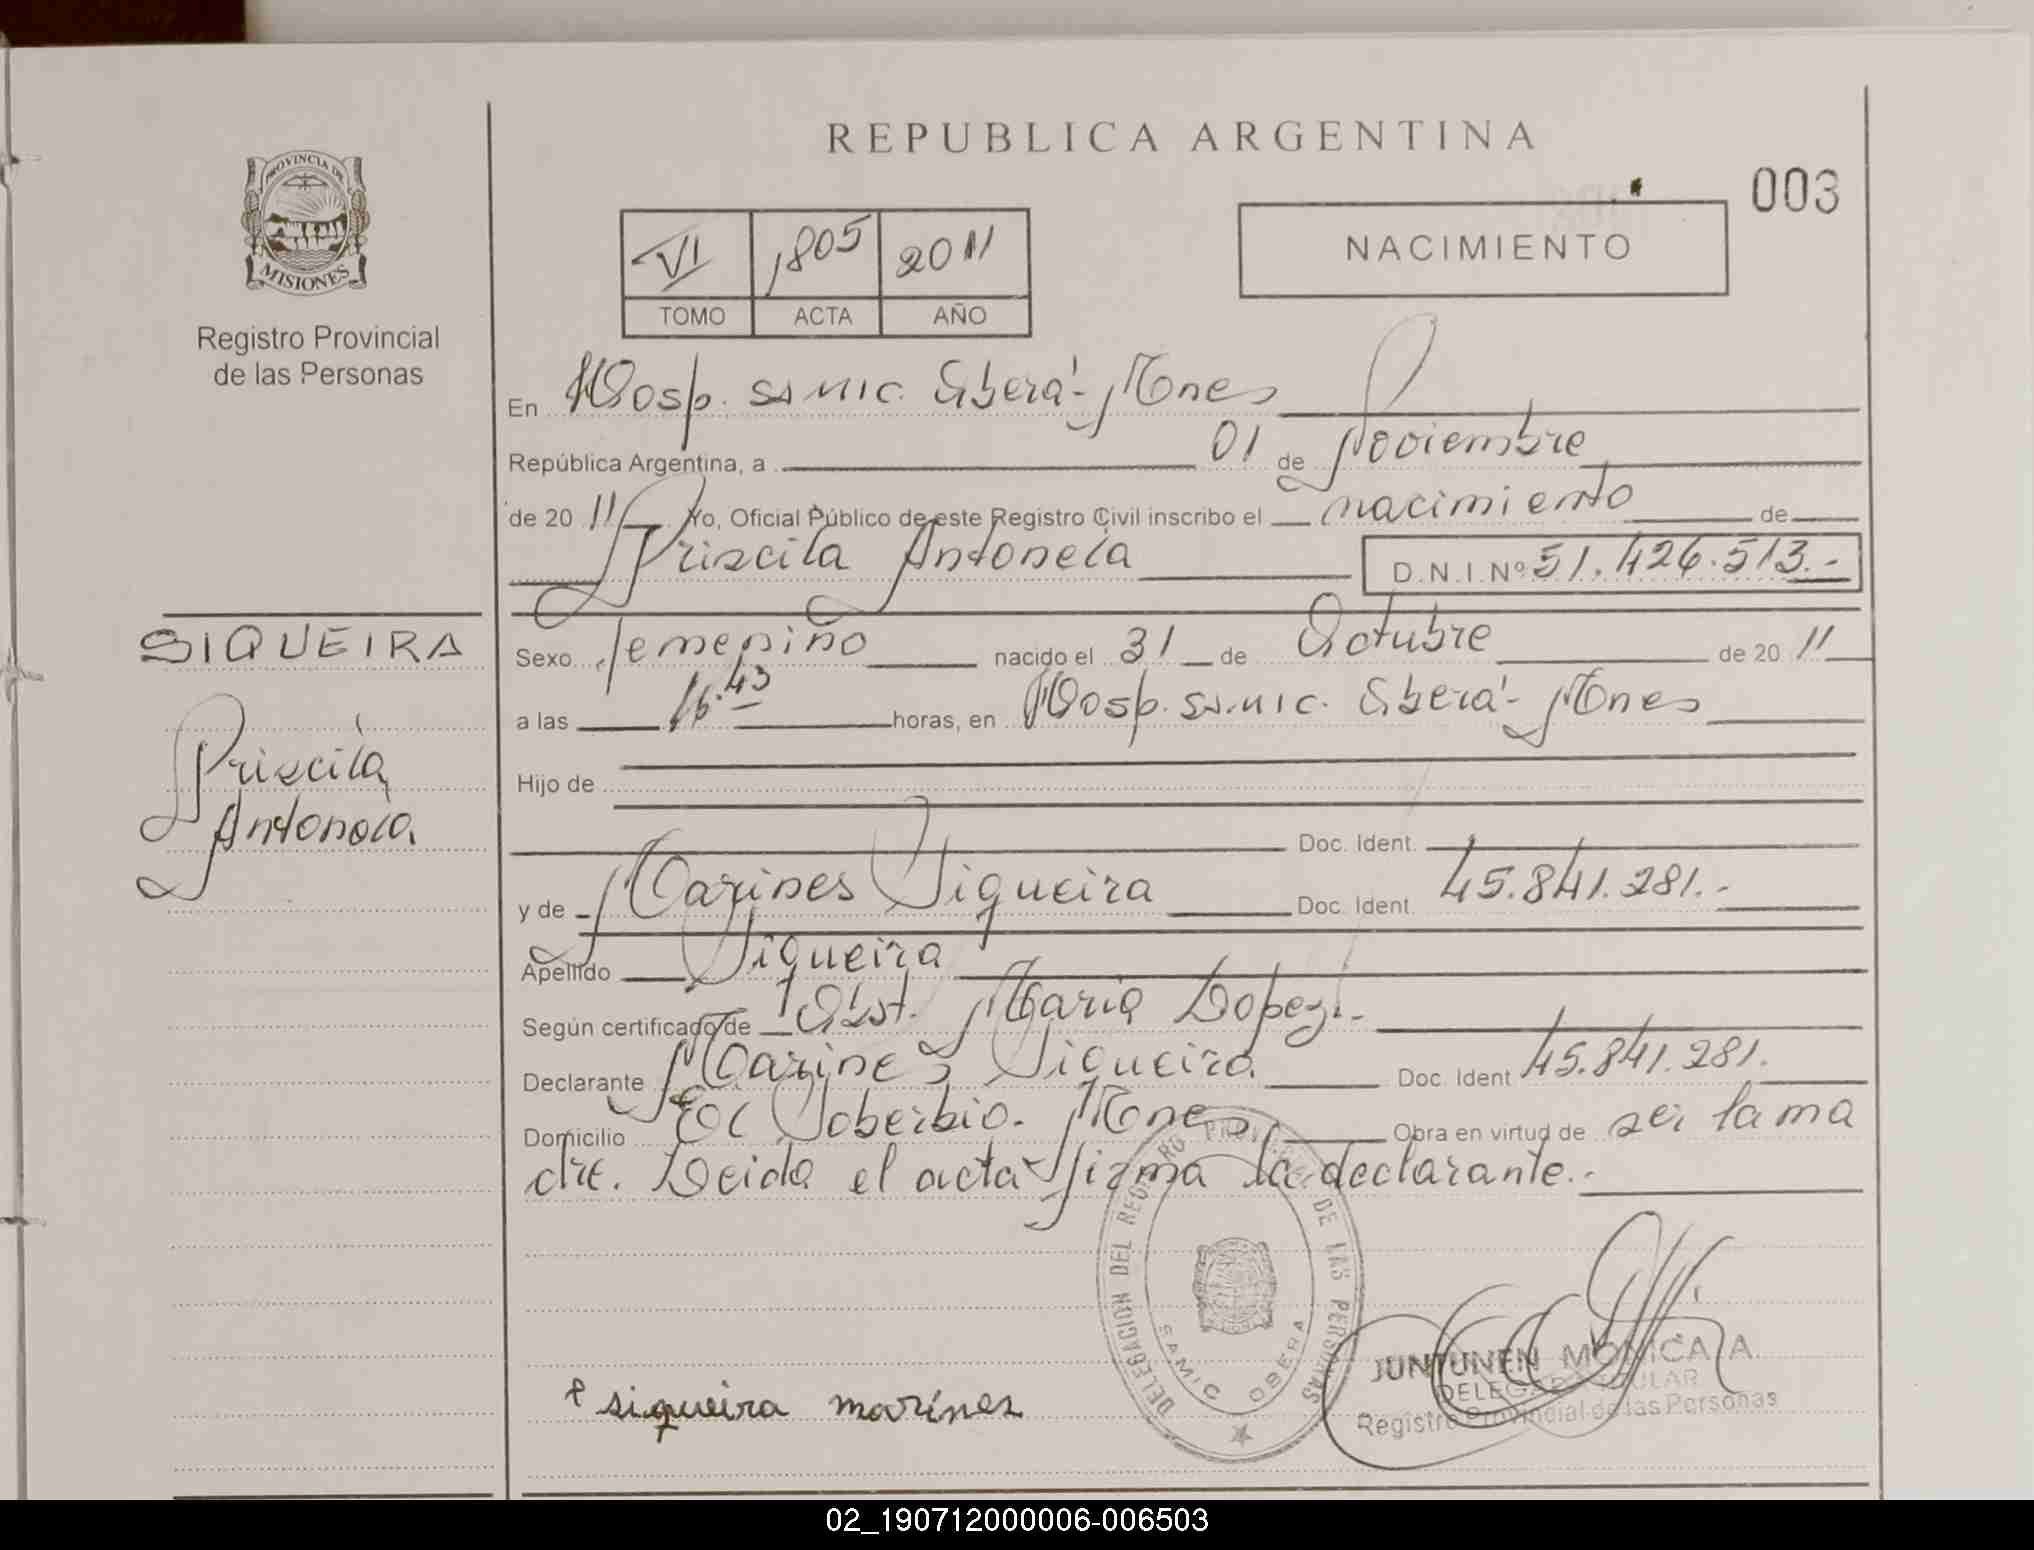 REPUBLICA ARGENTINA
003
PROVINCIA DE
MISIONES
Registro Provincial
de las Personas
VI 1805 2011
TOMO ACTA AÑO
NACIMIENTO
En Hosp. SAMIC. Oberá - Mnes
República Argentina, a 01 de Noviembre
de 20 11 Yo, Oficial Público de este Registro Civil inscribo el nacimiento de
Priscila Antonela D.N.I.Nº 51.426.513.-
SIQUEIRA
Priscila
Antonela.
Sexo femenino nacido el 31 de Octubre de 20 11
a las 16.43 horas, en Hosp. SAMIC. Oberá - Mnes
Hijo de
Doc. Ident.
y de Marines Siqueira Doc. Ident. 45.841.281.-
Apellido Siqueira
Según certificado de Obst. Maria Lopez.-
Declarante Marines Siqueira Doc. Ident 45.841.281.
Domicilio El Soberbio. Mnes Obra en virtud de ser la ma
dre. Leida el acta firma la declarante.-
DELEGACION DEL REGISTRO PROVINCIAL DE LAS PERSONAS
SAMIC OBERA
siqueira marines
JUNTUNEN MONICA A
DELEGADA TITULAR
Registro Provincial de las Personas
02_190712000006-006503